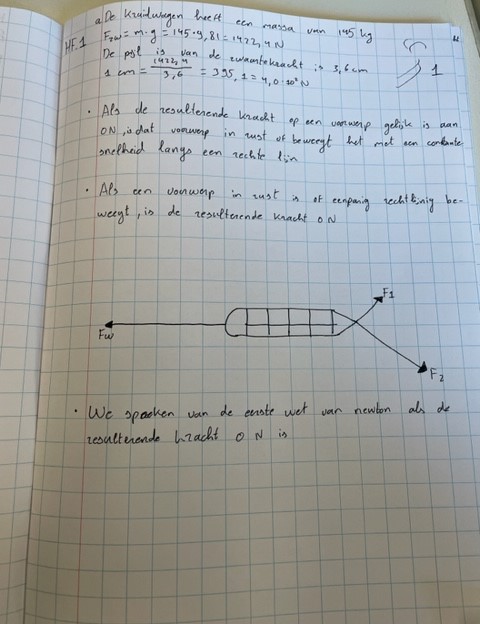 HF.1
a. De Kruiwagen heeft een massa van 145 kg
Fzw = m·g = 145·9,81 = 1422,4 N
De pijl is van de zwaartekracht is 3,6 cm
1 cm = 1422,4 / 3,6 = 395,1 = 4,0·10² N
1
• Als de resulterende kracht op een voorwerp gelijk is aan
0N, is dat voorwerp in rust of beweegt het met een constante
snelheid langs een rechte lijn
• Als een voorwerp in rust is of eenparig rechtlijnig be-
weegt, is de resulterende kracht 0 N
F1
Fw
F2
• We spreken van de eerste wet van newton als de
resulterende kracht 0 N is